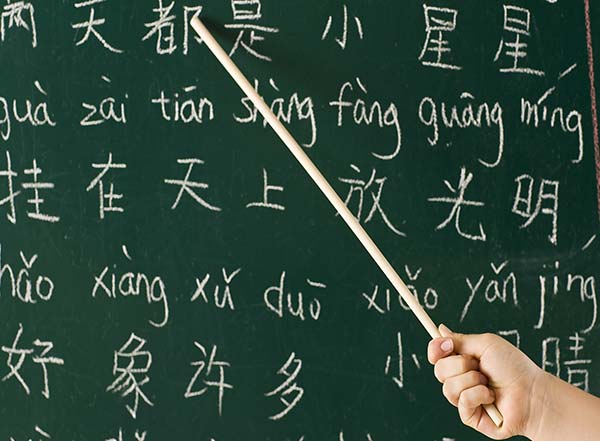 天都是小星星
guà zài tiān shàng fàng guāng míng
挂在天上放光明
hǎo xiàng xǔ duō xiǎo yǎn jīng
好象许多小睛